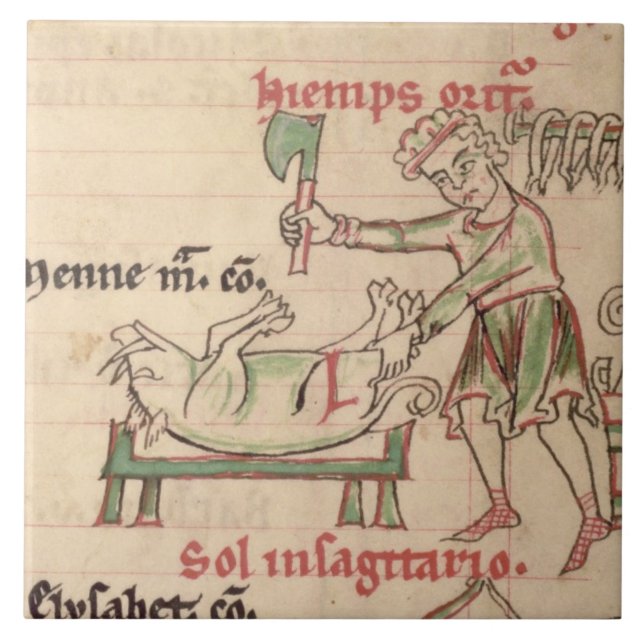 hiemps orit᷑.
Menne m̅. co̅.
Sol insagittario.
Elysabet. co̅.